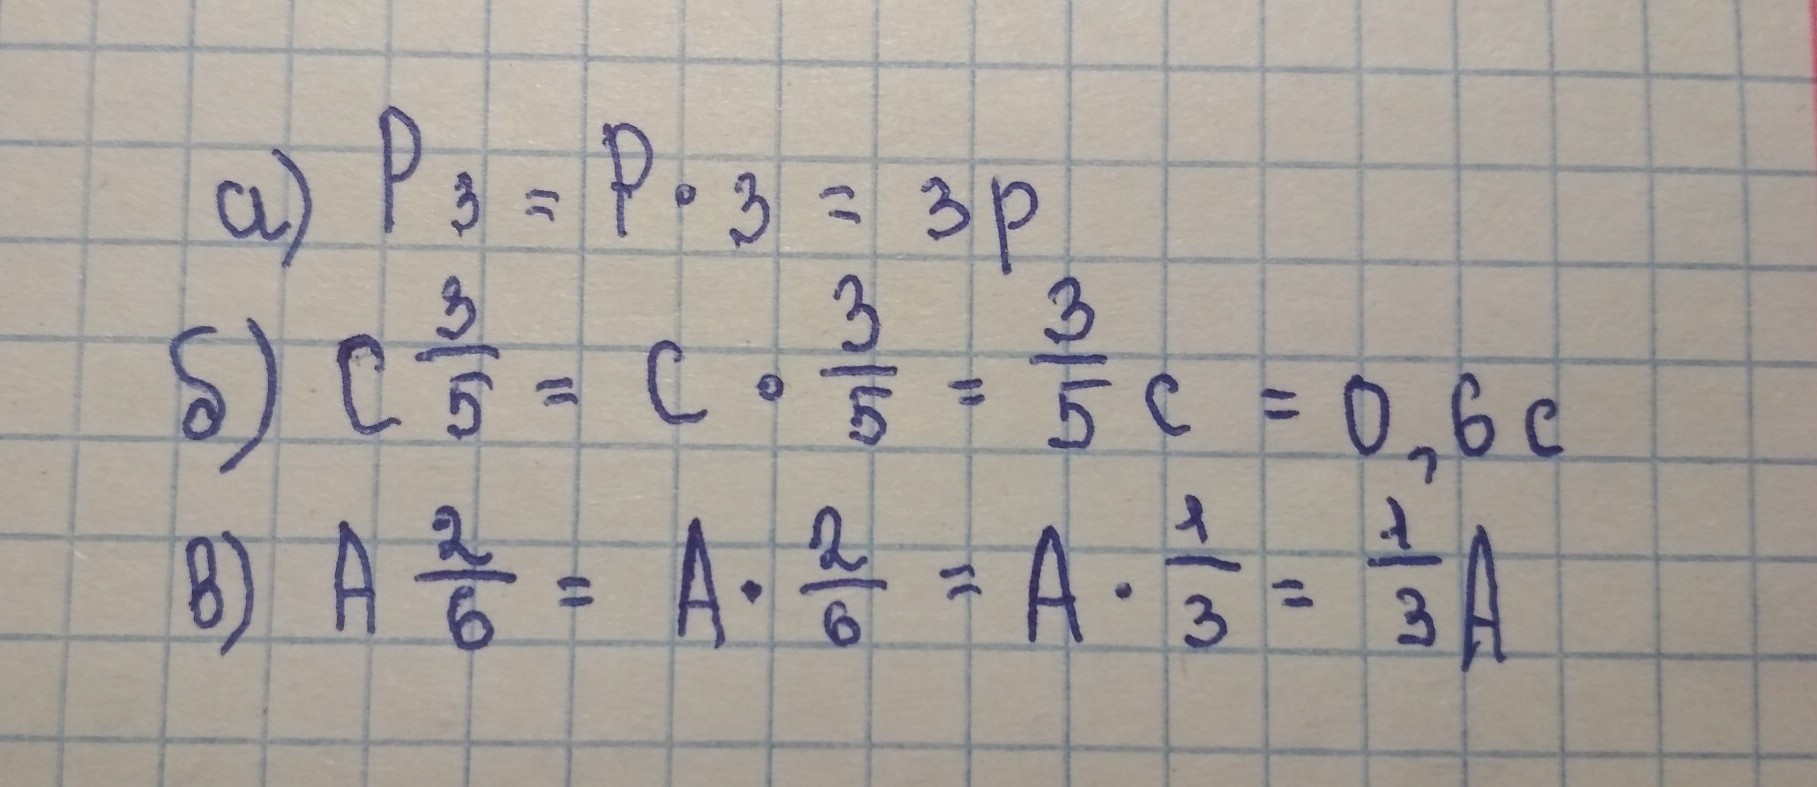 а) P3 = P · 3 = 3p
б) C 3/5 = C · 3/5 = 3/5 c = 0,6c
в) A 2/6 = A · 2/6 = A · 1/3 = 1/3 A